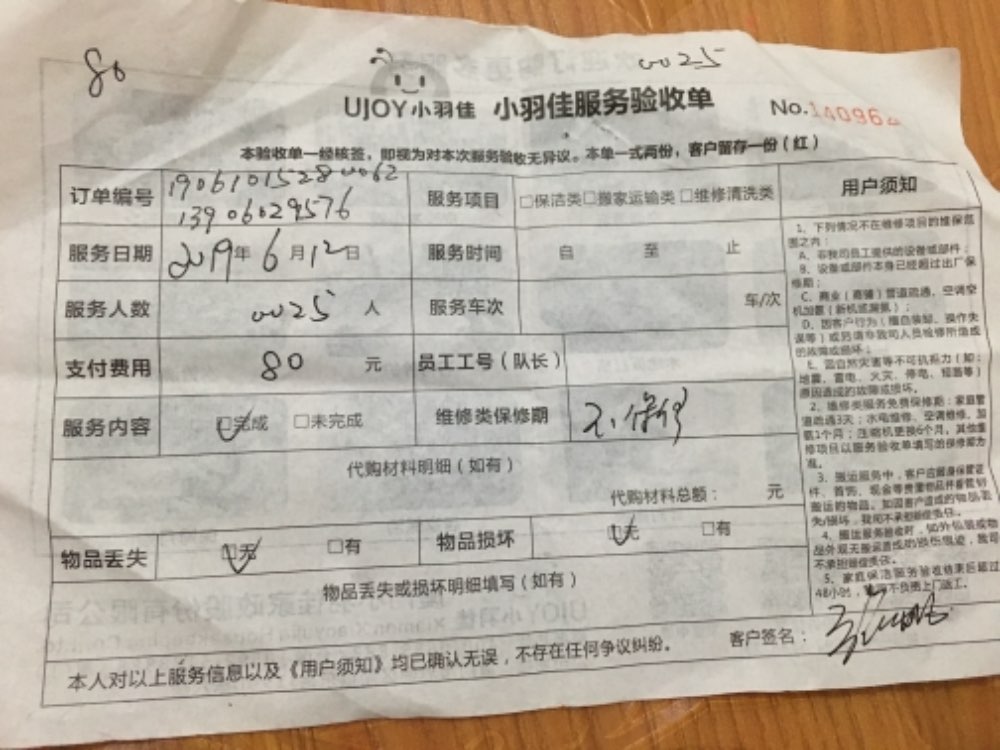 80
0025
UJOY小羽佳 小羽佳服务验收单
No.140962
本验收单一经核签，即视为对本次服务验收无异议。本单一式两份，客户留存一份（红）
订单编号 1906101528 0062
13906029576
服务项目 □保洁类□搬家运输类□维修清洗类
用户须知
服务日期 2019年6月12日
服务时间 自 至 止
服务人数 0025 人
服务车次 车/次
支付费用 80 元
员工工号（队长）
服务内容 ☑完成 □未完成
维修类保修期 不保修
代购材料明细（如有）
代购材料总额： 元
物品丢失 ☑无 □有
物品损坏 ☑无 □有
物品丢失或损坏明细填写（如有）
1、下列情况不在维修项目的维保范
围之内：
A、非我司员工提供的设备或部件；
B、设备或部件本身已经超过出厂保
修期；
C、商业（商铺）管道疏通、空调空
机加氟（新机或漏氟）；
D、因客户行为（擅自装卸、操作失
误等）或另请非我司人员检修所造成
的故障或损坏；
E、因自然灾害等不可抗拒力（如：
地震、雷电、火灾、停电、短路等）
原因造成的故障或损坏。
2、维修类服务免费保修期：家庭管
道疏通3天；水电维修、空调维修、加
氟1个月；压缩机更换6个月。其他维
修项目以服务验收单填写的保修期为
准。
3、搬运服务中，客户应随身保管证
件、首饰、现金等贵重物品并看管到
搬运的物品。
4、
不承担赔偿责任。
5、家庭保洁服务验收结束后超过
48小时，
客户签名：
本人对以上服务信息以及《用户须知》均已确认无误，不存在任何争议纠纷。